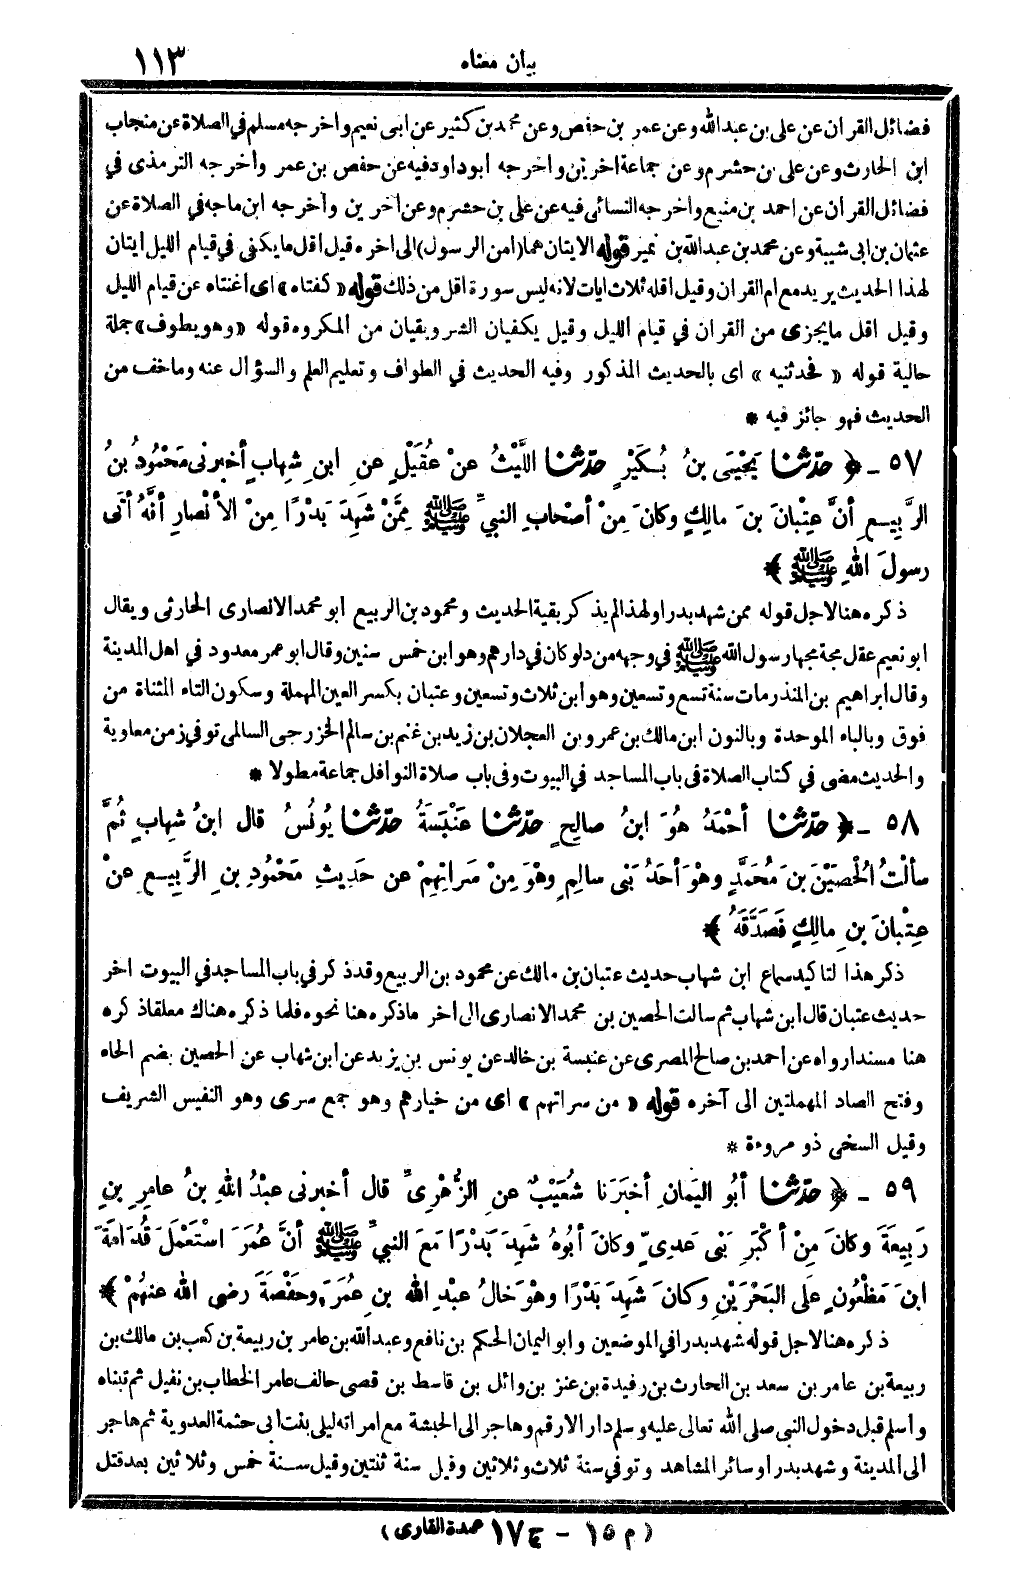 بيان معناه ١١٣
فضائل القرآن عن علي بن عبدالله وعن عمر بن حفص وعن محمد بن كثير عن ابى نعيم واخرجه مسلم في الصلاة عن منجاب
ابن الحارث وعن علي بن حشرم وعن جماعة اخرين واخرجه ابوداود فيه عن حفص بن عمر واخرجه الترمذى في
فضائل القرآن عن احمد بن منيع واخرجه النسائى فيه عن علي بن حشرم وعن اخرين واخرجه ابن ماجه في الصلاة عن
عثمان بن ابى شيبة وعن محمد بن عبدالله بن نمير قوله الايتان هما (امن الرسول) الى اخره قيل اقل ما يكفى في قيام الليل ايتان
لهذا الحديث يريد مع ام القرآن وقيل اقله ثلاث ايات لانه ليس سورة اقل من ذلك قوله « كفتاه » اى اغنتاه عن قيام الليل
وقيل اقل ما يجزى من القرآن في قيام الليل وقيل يكفيان الشر ويقيان من المكروه قوله «وهو يطوف» جملة
حالية قوله « فحدثنيه » اى بالحديث المذكور وفيه الحديث في الطواف وتعليم العلم والسؤال عنه وما خف من
الحديث فهو جائز فيه *
٥٧ - ﴿ حدثنا يَحْيَى بنُ بُكَيْرٍ حدثنا اللَّيْثُ عنْ عُقَيْلٍ عنِ ابنِ شِهابٍ أخبرنى مَحْمُودُ بنُ
الرَّبِيعِ أنَّ عِتْبانَ بنَ مالِكٍ وكانَ مِنْ أصْحابِ النبيِّ ﷺ مِمَّنْ شَهِدَ بَدْرًا مِنَ الأنْصارِ أنَّهُ أتَى
رسولَ اللهِ ﷺ ﴾
ذكره هنا لاجل قوله ممن شهد بدرا ولهذا لم يذكر بقية الحديث ومحمود بن الربيع ابو محمد الانصارى الحارثى ويقال
ابو نعيم عقل مجة مجها رسول الله ﷺ في وجهه من دلو كان في دارهم وهو ابن خمس سنين وقال ابو عمر معدود في اهل المدينة
وقال ابراهيم بن المنذر مات سنة تسع وتسعين وهو ابن ثلاث وتسعين وعتبان بكسر العين المهملة وسكون التاء المثناة من
فوق وبالباء الموحدة وبالنون ابن مالك بن عمرو بن العجلان بن زيد بن غنم بن سالم الخزرجى السالمى توفي زمن معاوية
والحديث مضى في كتاب الصلاة فى باب المساجد في البيوت وفى باب صلاة النوافل جماعة مطولا *
٥٨ - ﴿ حدثنا أحْمَدُ هُوَ ابنُ صالِحٍ حدثنا عَنْبَسَةُ حدثنا يُونُسُ قال ابنُ شِهابٍ ثُمَّ
سألْتُ الحُصَيْنَ بنَ مُحَمَّدٍ وهْوَ أحَدُ بَنى سالِمٍ وهْوَ مِنْ سَرَاتِهِمْ عن حَدِيثِ مَحْمُودِ بنِ الرَّبِيعِ عنْ
عِتْبانَ بنِ مالِكٍ فَصَدَّقَهُ ﴾
ذكر هذا لتاكيد سماع ابن شهاب حديث عتبان بن مالك عن محمود بن الربيع وقد ذكر في باب المساجد في البيوت اخر
حديث عتبان قال ابن شهاب ثم سالت الحصين بن محمد الانصارى الى اخر ما ذكره هنا نحوه فلما ذكره هناك معلقا ذكره
هنا مسندا رواه عن احمد بن صالح المصرى عن عنبسة بن خالد عن يونس بن يزيد عن ابن شهاب عن الحصين بضم الحاء
وفتح الصاد المهملتين الى آخره قوله « من سراتهم » اى من خيارهم وهو جمع سرى وهو النفيس الشريف
وقيل السخى ذو مروءة *
٥٩ - ﴿ حدثنا أبُو اليَمانِ أخبَرَنا شُعَيْبٌ عنِ الزُّهْرِىِّ قال أخبرنى عبْدُ اللهِ بنُ عامِرِ بنِ
رَبِيعَةَ وكانَ مِنْ أكْبَرِ بَنى عَدِىٍّ وكانَ أبُوهُ شَهِدَ بَدْرًا مَعَ النبيِّ ﷺ أنَّ عُمَرَ اسْتَعْمَلَ قُدَامَةَ
ابنَ مَظْعُونٍ علَى البَحْرَيْنِ وكانَ شَهِدَ بَدْرًا وهْوَ خالُ عبْدِ اللهِ بنِ عُمَرَ وحَفْصَةَ رضى الله عنهُمْ ﴾
ذكره هنا لاجل قوله شهد بدرا في الموضعين وابو اليمان الحكم بن نافع وعبد الله بن عامر بن ربيعة بن كعب بن مالك بن
ربيعة بن عامر بن سعد بن الحارث بن رفيدة بن عنز بن وائل بن قاسط بن قصى حالف عامر الخطاب بن نفيل ثم تبناه
واسلم قبل دخول النبى صلى الله تعالى عليه وسلم دار الارقم وهاجر الى الحبشة مع امراته ليلى بنت ابى حثمة العدوية ثم هاجر
الى المدينة وشهد بدرا وسائر المشاهد وتوفي سنة ثلاث وثلاثين وقيل سنة ثنتين وقيل سنة خمس وثلاثين بعد قتل
( م ١٥ - ج ١٧ عمدة القارى )